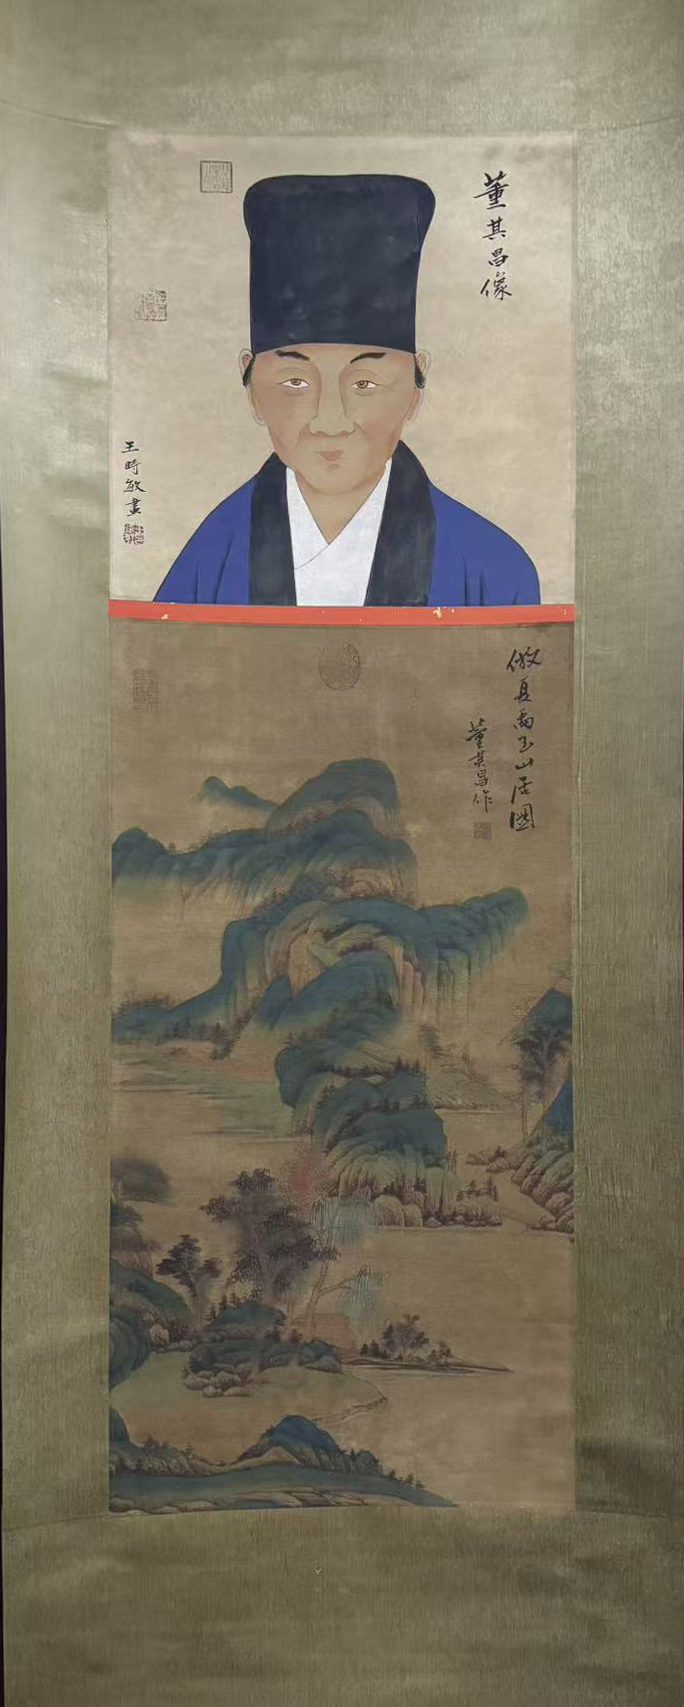 董其昌像
王時敏畫
倣夏禹玉山居圖
董其昌作